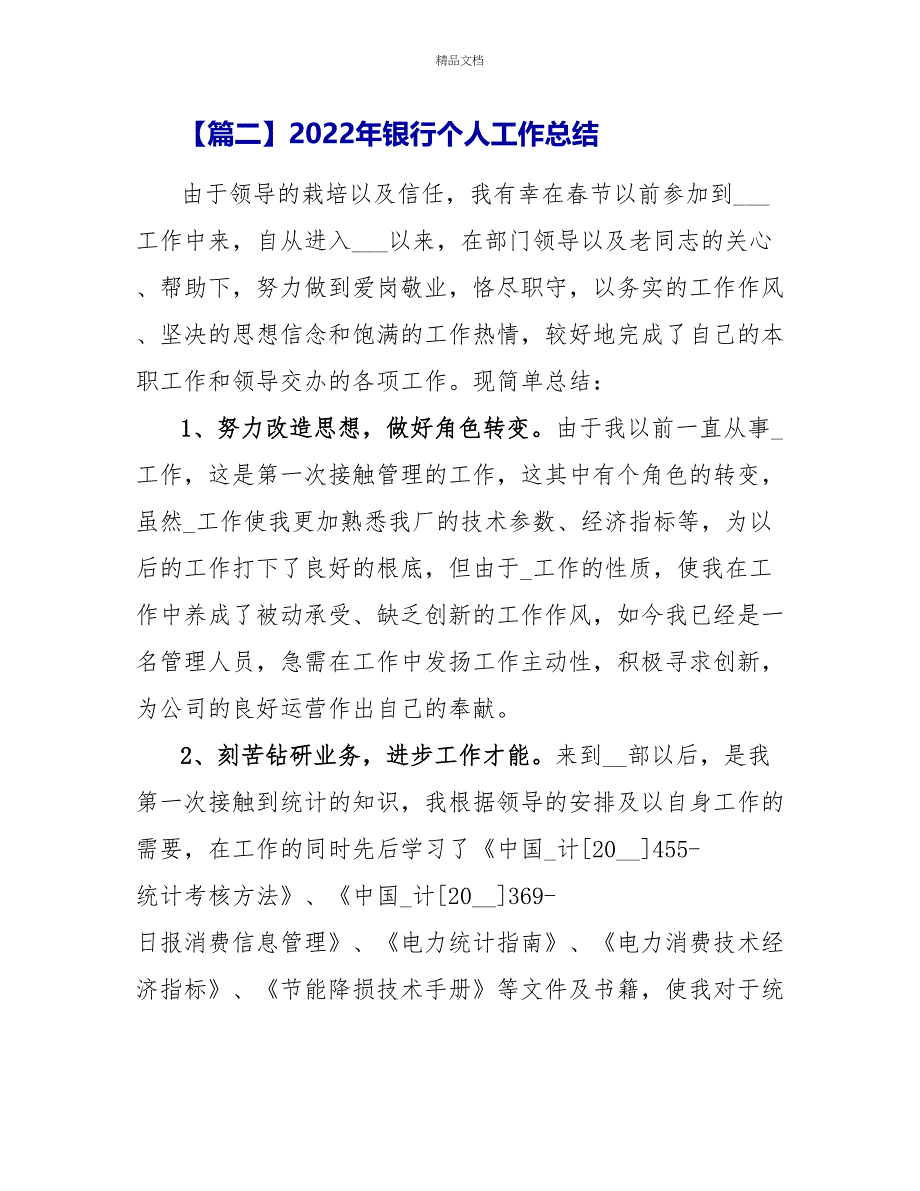 精品文档
【篇二】2022年银行个人工作总结
由于领导的栽培以及信任，我有幸在春节以前参加到___
工作中来，自从进入___以来，在部门领导以及老同志的关心
、帮助下，努力做到爱岗敬业，恪尽职守，以务实的工作作风
、坚决的思想信念和饱满的工作热情，较好地完成了自己的本
职工作和领导交办的各项工作。现简单总结：
1、努力改造思想，做好角色转变。由于我以前一直从事_
工作，这是第一次接触管理的工作，这其中有个角色的转变，
虽然_工作使我更加熟悉我厂的技术参数、经济指标等，为以
后的工作打下了良好的根底，但由于_工作的性质，使我在工
作中养成了被动承受、缺乏创新的工作作风，如今我已经是一
名管理人员，急需在工作中发扬工作主动性，积极寻求创新，
为公司的良好运营作出自己的奉献。
2、刻苦钻研业务，进步工作才能。来到__部以后，是我
第一次接触到统计的知识，我根据领导的安排及以自身工作的
需要，在工作的同时先后学习了《中国_计[20__]455-
统计考核方法》、《中国_计[20__]369-
日报消费信息管理》、《电力统计指南》、《电力消费技术经
济指标》、《节能降损技术手册》等文件及书籍，使我对于统